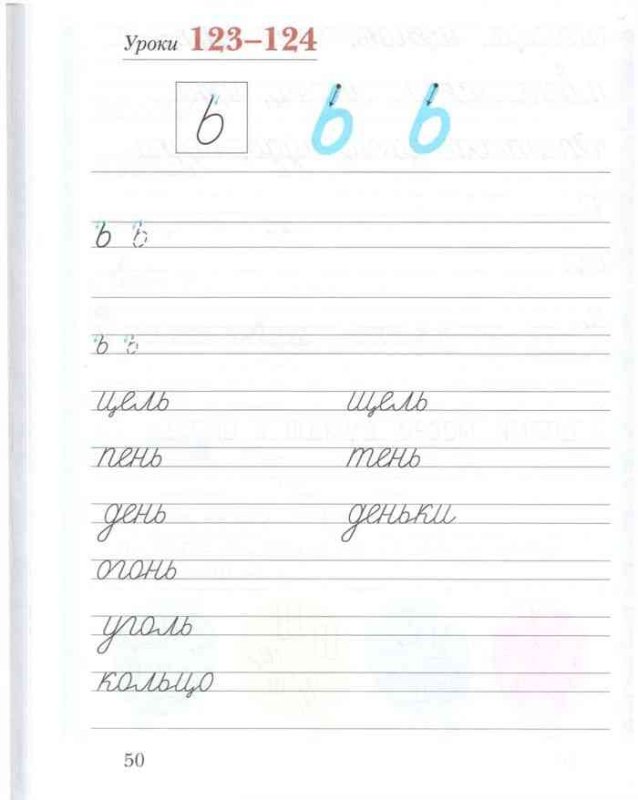 Уроки 123–124
ь ь ь
ь ь
ь ь
цель щель
пень тень
день деньки
огонь
уголь
кольцо
50